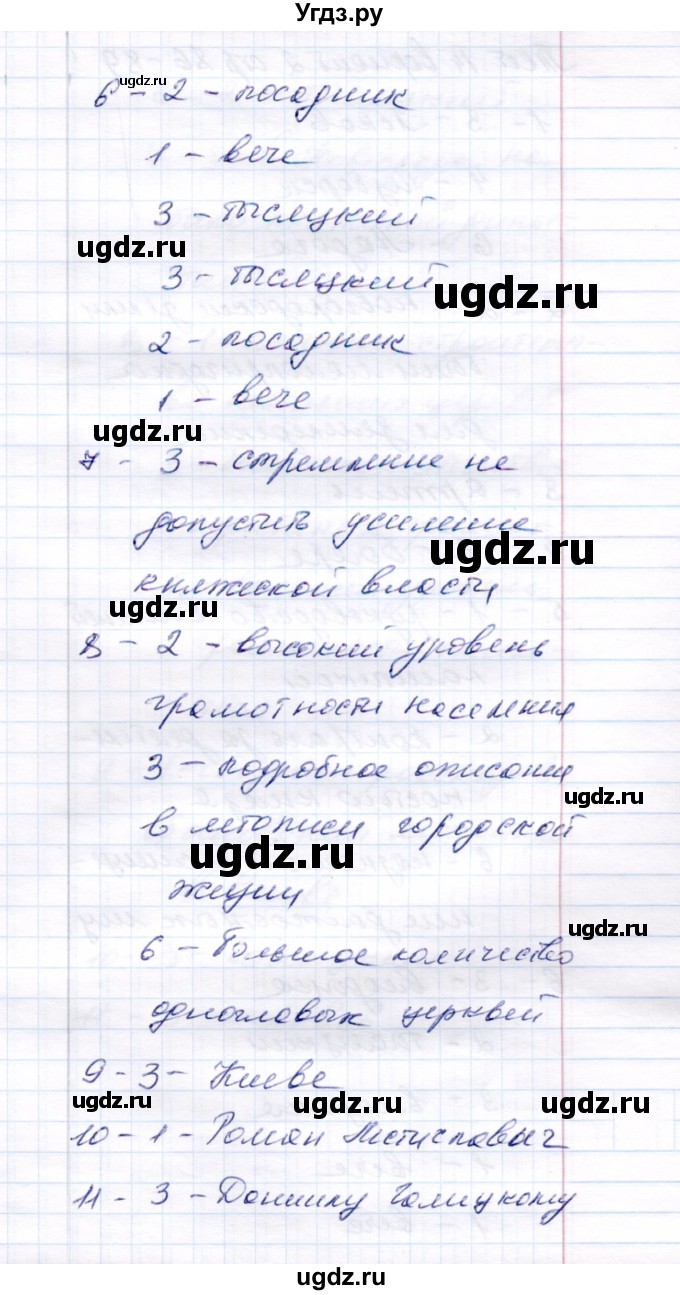 Угдз.ру
6 - 2 - посадник
1 - вече
3 - тысяцкий
3 - тысяцкий
2 - посадник
1 - вече
7 - 3 - стремление не
допустить усиление
княжеской власти
8 - 2 - высокий уровень
грамотности населения
3 - подробное описание
в летописи городской
жизни
6 - большое количество
одноглавых церквей
9 - 3 - Киеве
10 - 1 - Роман Мстиславыч
11 - 3 - Даниилу Галицкому
ugdz.ru
ugdz.ru
ugdz.ru
ugdz.ru
ugdz.ru
ugdz.ru
ugdz.ru
ugdz.ru
ugdz.ru
ugdz.ru
ugdz.ru
ugdz.ru
ugdz.ru
ugdz.ru